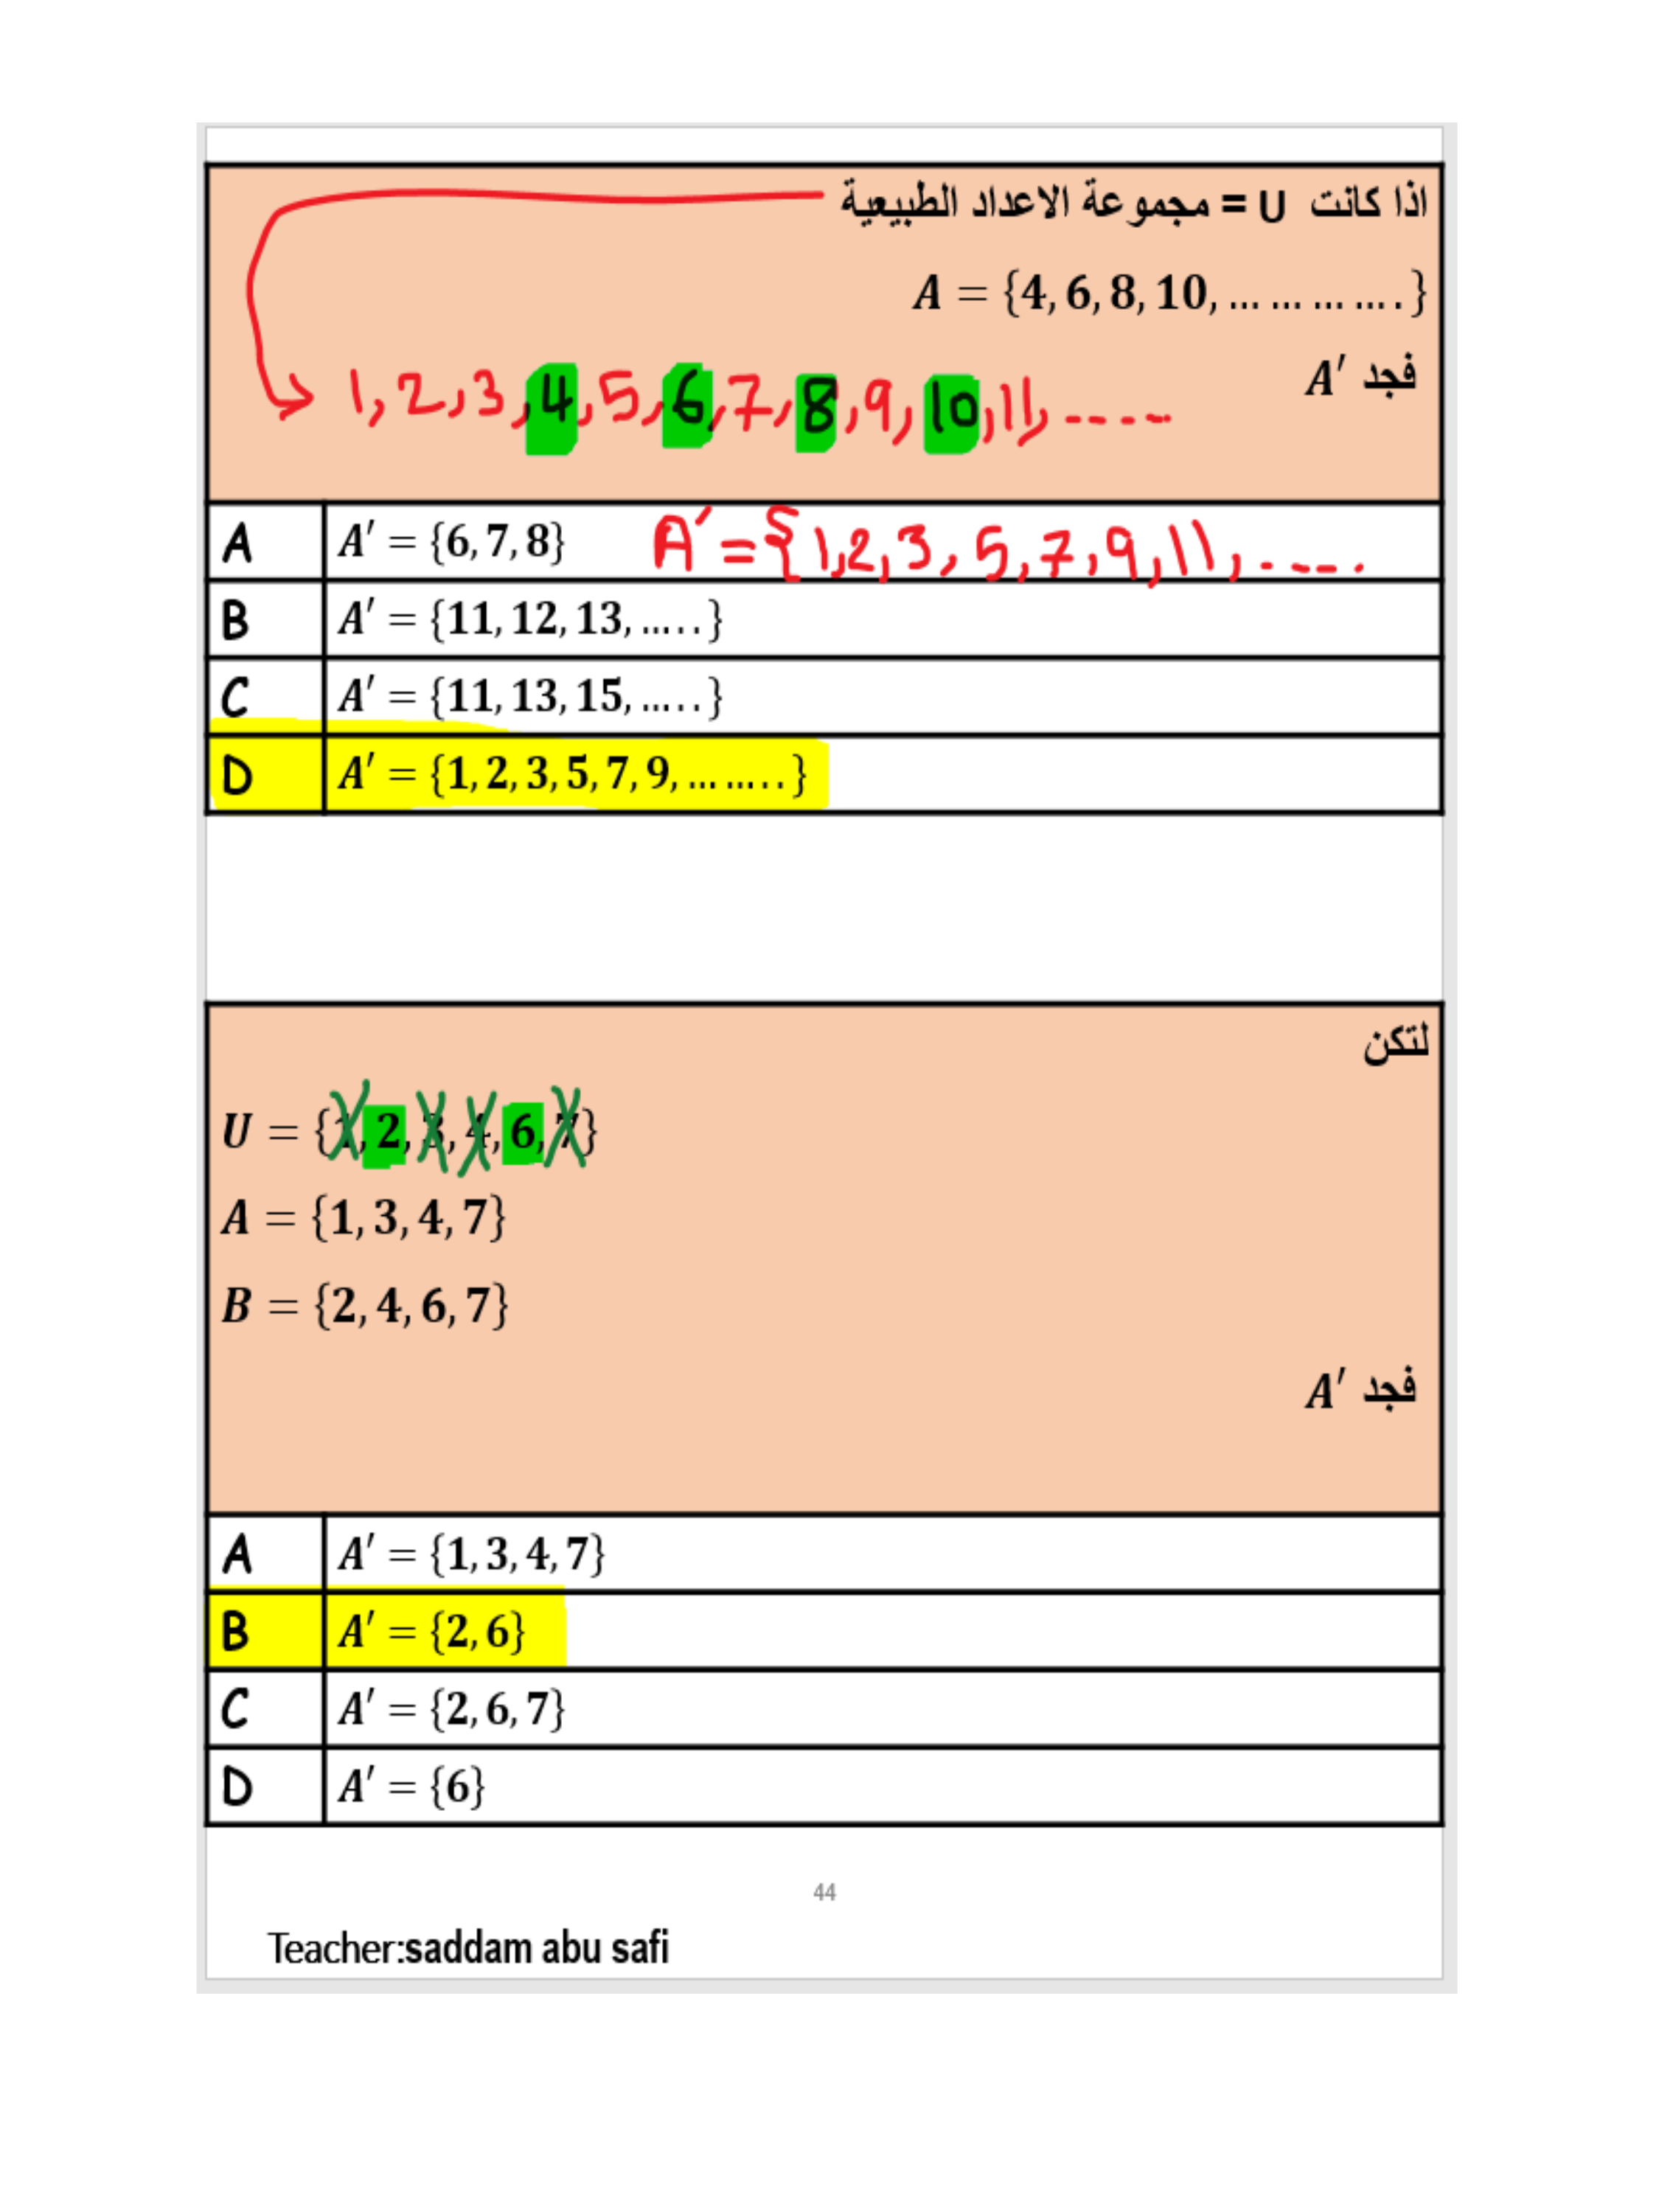 اذا كانت U = مجموعة الاعداد الطبيعية
A = {4, 6, 8, 10, … … … … . }
فجد A′
1, 2, 3, 4, 5, 6, 7, 8, 9, 10, 11, -----
A A′ = {6, 7, 8} A′ = {1, 2, 3, 5, 7, 9, 11, ....
B A′ = {11, 12, 13, … . . }
C A′ = {11, 13, 15, … . . }
D A′ = {1, 2, 3, 5, 7, 9, … … . . }
لتكن
U = {1, 2, 3, 4, 6, 7}
A = {1, 3, 4, 7}
B = {2, 4, 6, 7}
فجد A′
A A′ = {1, 3, 4, 7}
B A′ = {2, 6}
C A′ = {2, 6, 7}
D A′ = {6}
44
Teacher:saddam abu safi